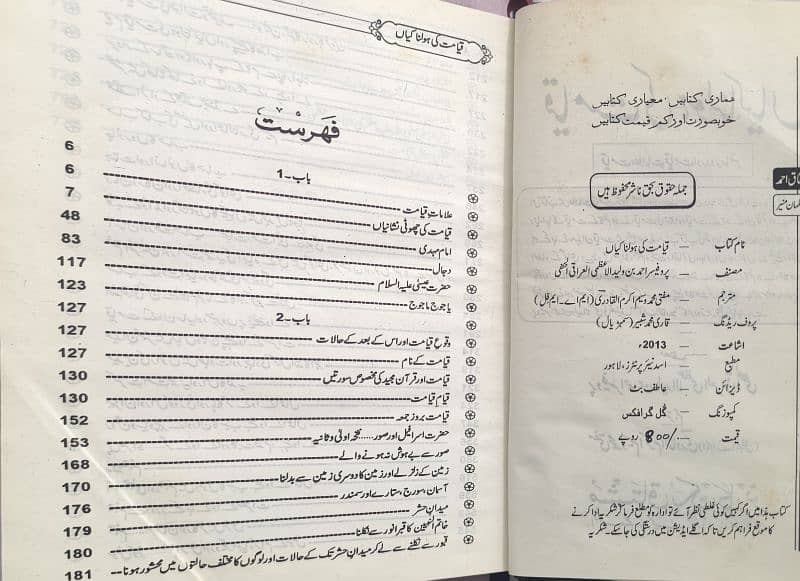 ہماری کتابیں، معیاری کتابیں
خوبصورت اور کم قیمت کتابیں
جملہ حقوق بحق ناشر محفوظ ہیں
نام کتاب — قیامت کی ہولناکیاں
مصنف — پروفیسر احمد بن ولید الاعظمی العراقی الحنفی
مترجم — مفتی محمد وسیم اکرم القادری (ایم اے۔ ایم فل)
پروف ریڈنگ — قاری محمد شبیر (سمبڑیال)
اشاعت — 2013ء
مطبع — اسد نیئر پرنٹرز، لاہور
ڈیزائن — عاطف بٹ
کمپوزنگ — گل گرافکس
قیمت — 800/ روپے
کتاب ہذا میں اگر کہیں کوئی غلطی نظر آئے تو ادارہ کو مطلع فرما کر شکریہ ادا کرنے
کا موقع فراہم کریں تاکہ اگلے ایڈیشن میں درستگی کی جا سکے۔ شکریہ
قیامت کی ہولناکیاں
فہرست
باب۔1 6
علامات قیامت 6
قیامت کی چھوٹی نشانیاں 7
امام مہدی 48
دجال 83
حضرت عیسیٰ علیہ السلام 117
یاجوج ماجوج 123
باب۔2 127
وقوع قیامت اور اس کے بعد کے حالات 127
قیامت کے نام 127
قیامت اور قرآن مجید کی مخصوص سورتیں 130
قیام قیامت 130
قیامت بروز جمعہ 152
حضرت اسرافیل اور صور..... نفخہ اولیٰ و ثانیہ 153
صور سے بے ہوش نہ ہونے والے 168
زمین کے زلزلے اور زمین کا دوسری زمین سے بدلنا 170
آسمان، سورج، ستارے اور سمندر 176
میدان حشر 179
خاتم النبیین کا قبر انور سے نکلنا 180
قبور سے نکلنے سے لے کر میدان حشر تک کے حالات اور لوگوں کا مختلف حالتوں میں محشور ہونا 181